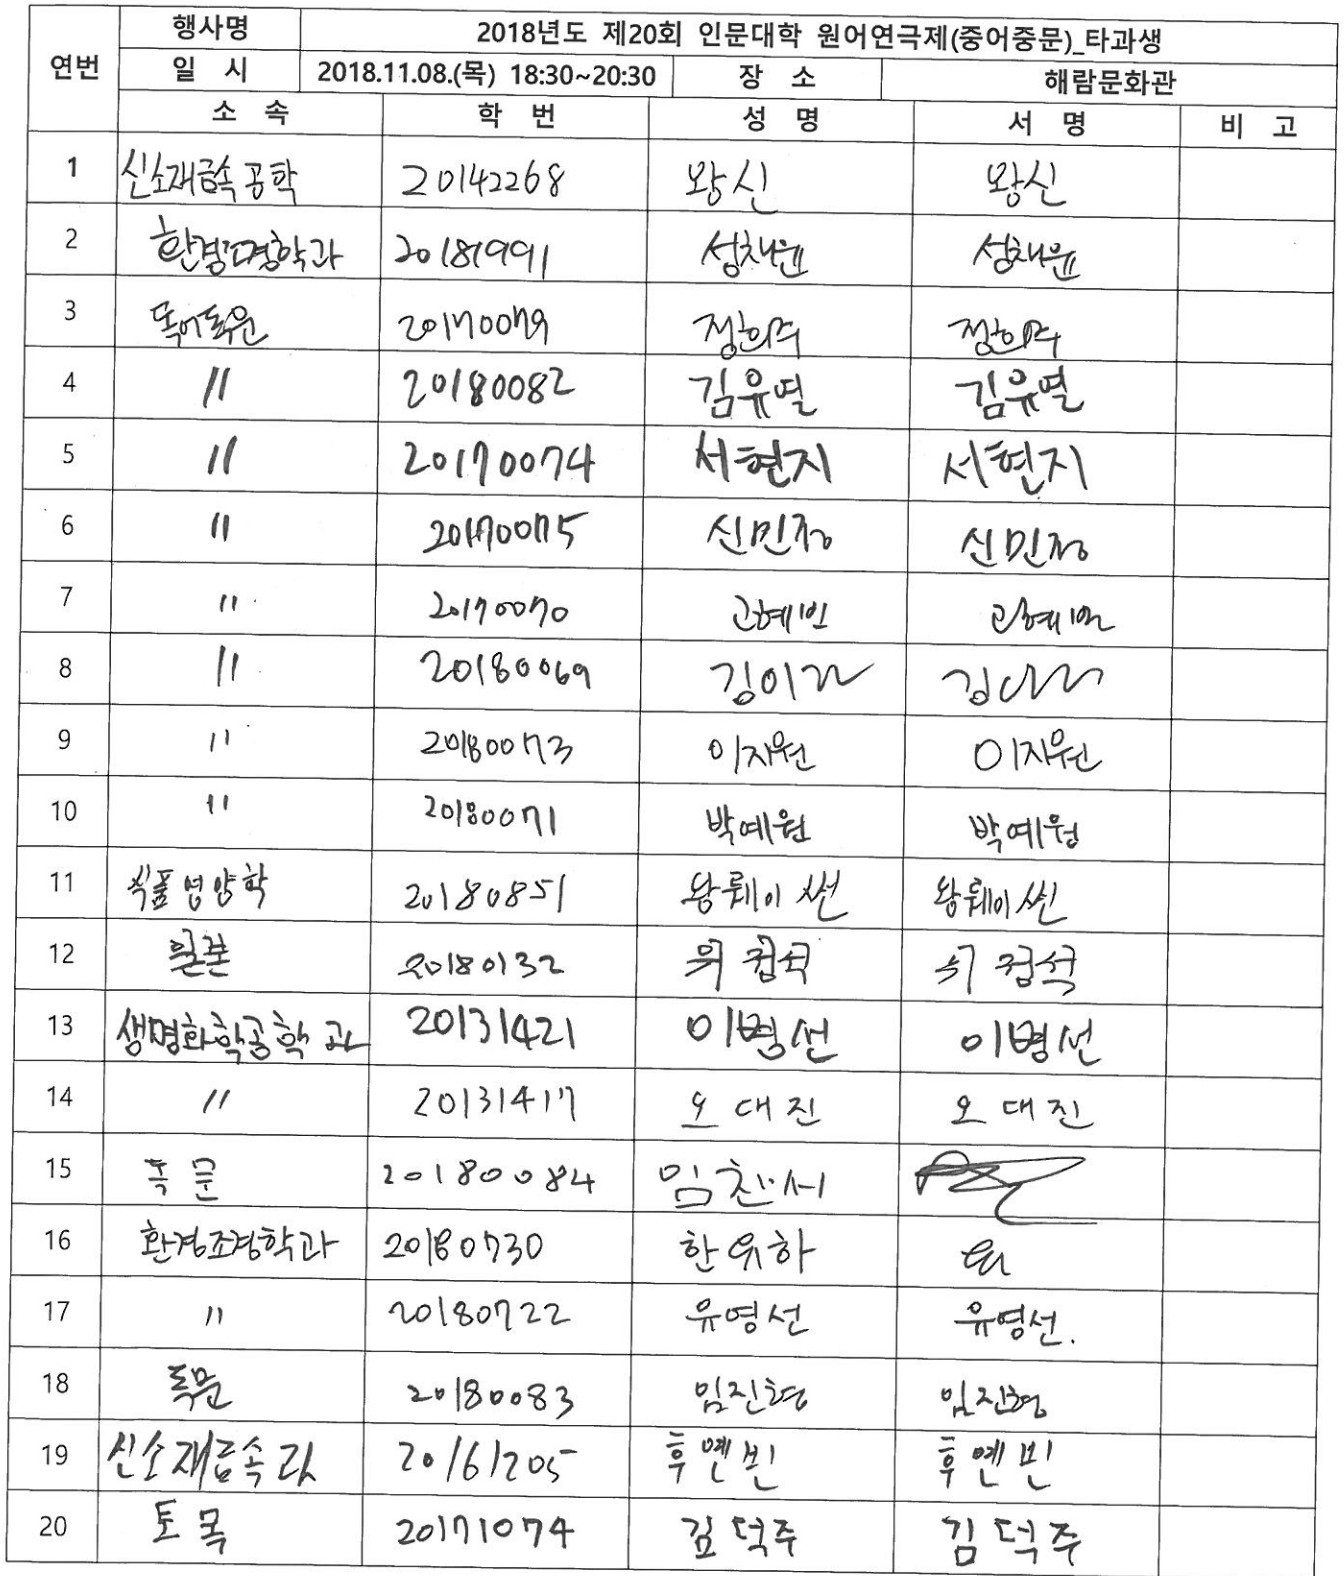 연번 행사명 2018년도 제20회 인문대학 원어연극제(중어중문)_타과생
일 시 2018.11.08.(목) 18:30~20:30 장 소 해람문화관
소 속 학 번 성 명 서 명 비 고
1 신소재금속공학 20142268 왕신 왕신
2 학과 20181991 성채윤 성채윤
3 독어독문 20170079 정희주 정희주
4 〃 20180082 김유열 김유열
5 〃 20170074 서현지 서현지
6 〃 20170075 신민정 신민정
7 〃 20170070 고혜빈 고혜빈
8 〃 20180069
9 〃 20180073 이지원 이지원
10 〃 20180071 박예원 박예원
11 식품영양학 20180851 왕뤠이쎈 왕뤠이쎈
12 일본 20180132
13 생명화학공학과 20131421 이병선 이병선
14 〃 20131417 오대진 오대진
15 독문 20180084 임찬서
16 환경조경학과 20180730 한유하
17 〃 20180722 유영선 유영선.
18 독문 20180083 임진형 임진형
19 신소재금속과 20161205 후옌빈 후옌빈
20 토목 20171074 김덕주 김덕주